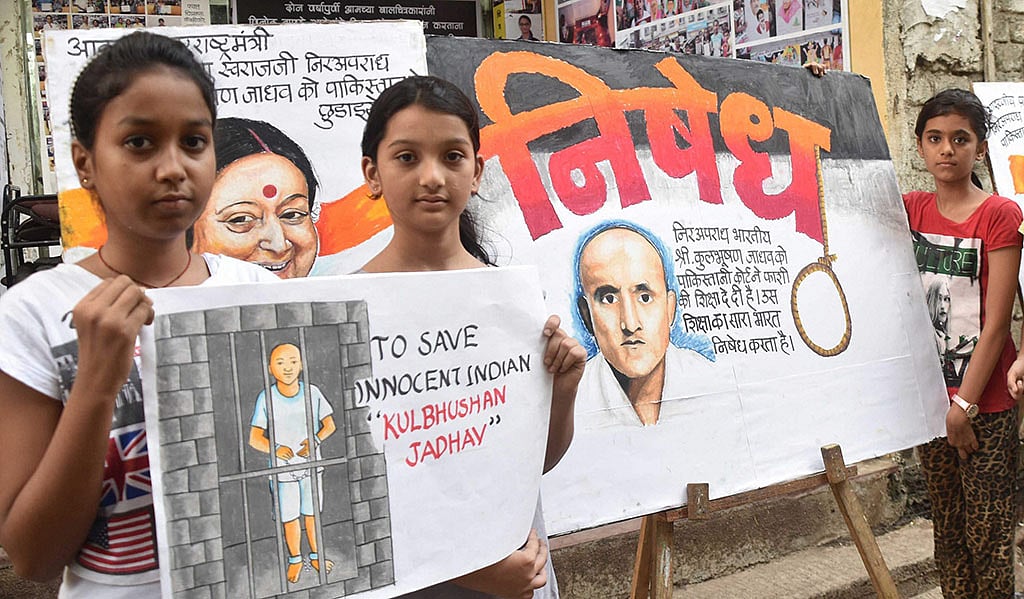 दोन वर्षांपूर्वी आमच्या
करताना
राष्ट्रमंत्री
स्वराजजी निरअपराध
जाधव को पाकिस्तान
छुडाइए
निषेध
निरअपराध भारतीय
श्री. कुलभूषण जाधव को
पाकिस्तानि कोर्ट ने फासी
की शिक्षा दे दी है। उस
शिक्षा का सारा भारत
निषेध करता है।
TO SAVE
INNOCENT INDIAN
"KULBHUSHAN
JADHAV"
CULTURE